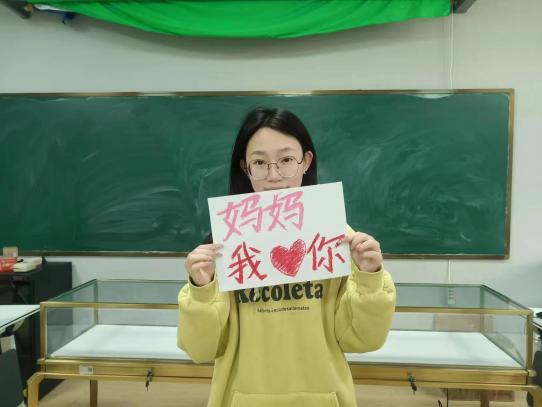 妈妈
我❤你
Recoleta